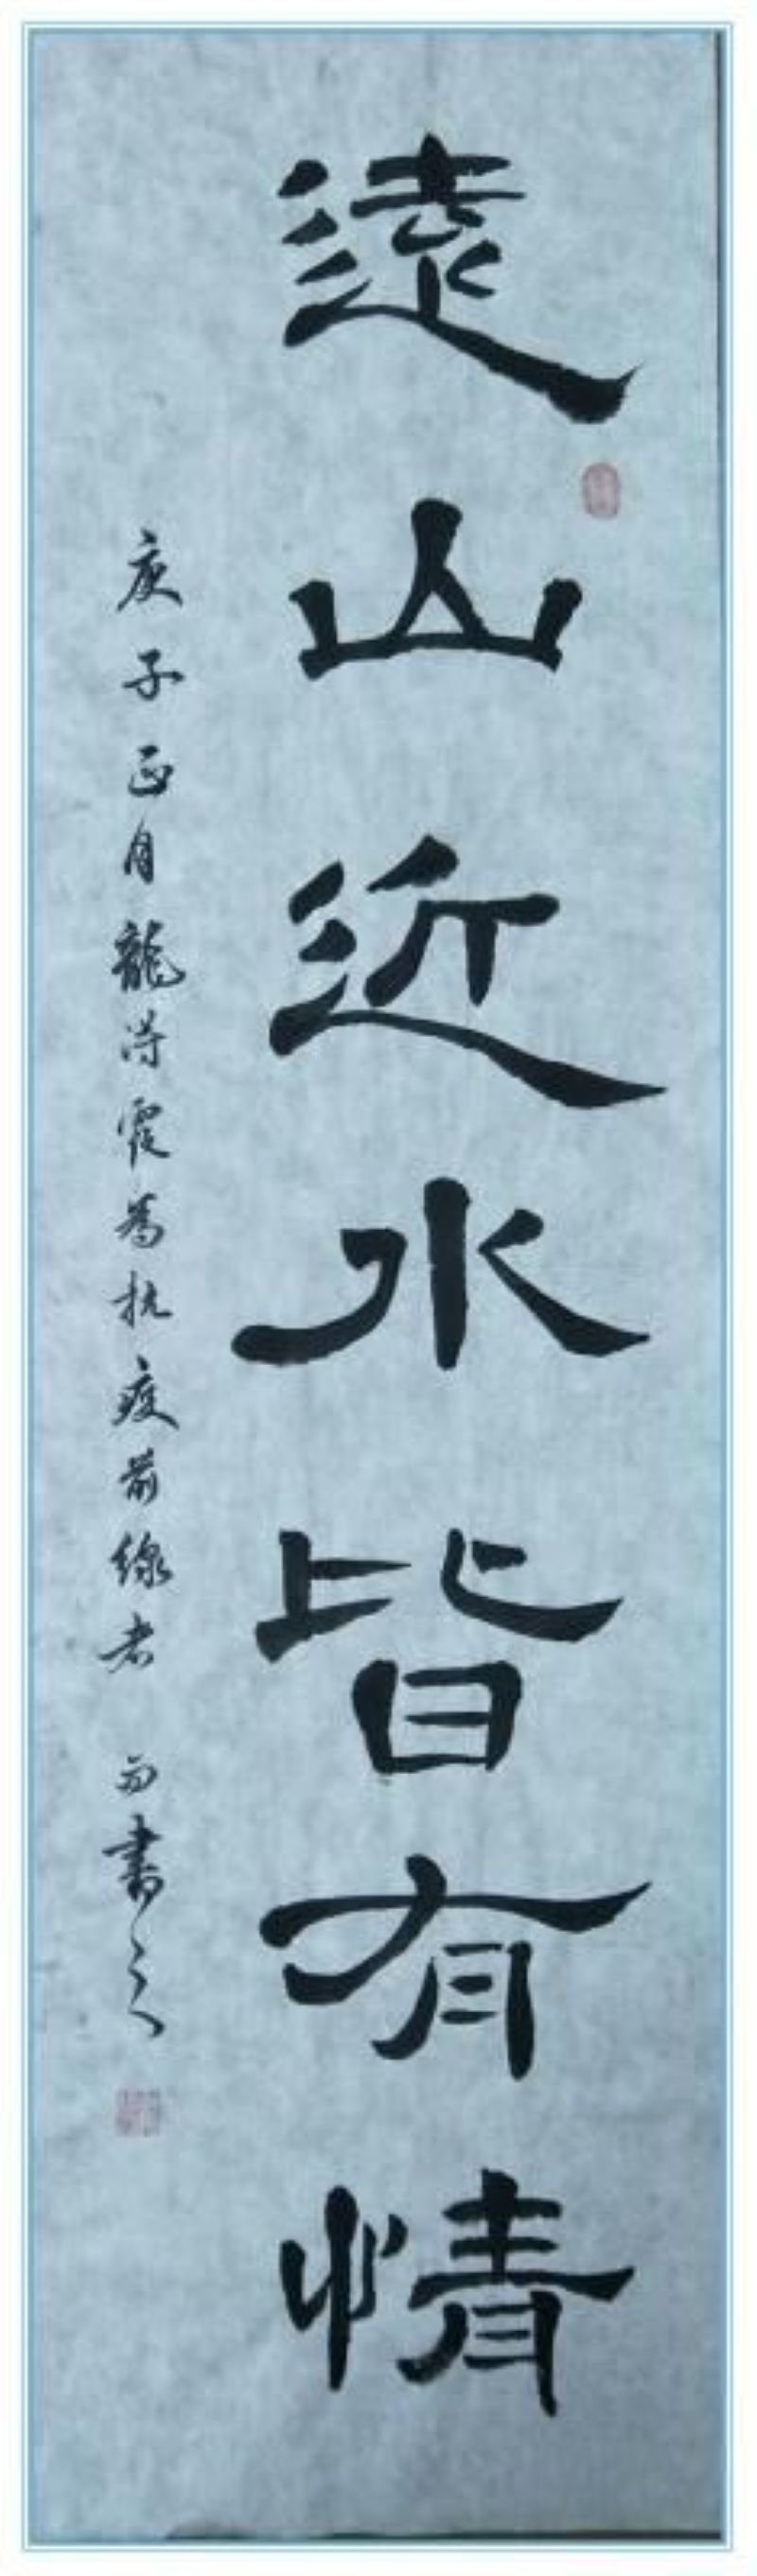 遠山近水皆有情
庚子正月龍得霞為抗疫前線者 而書之